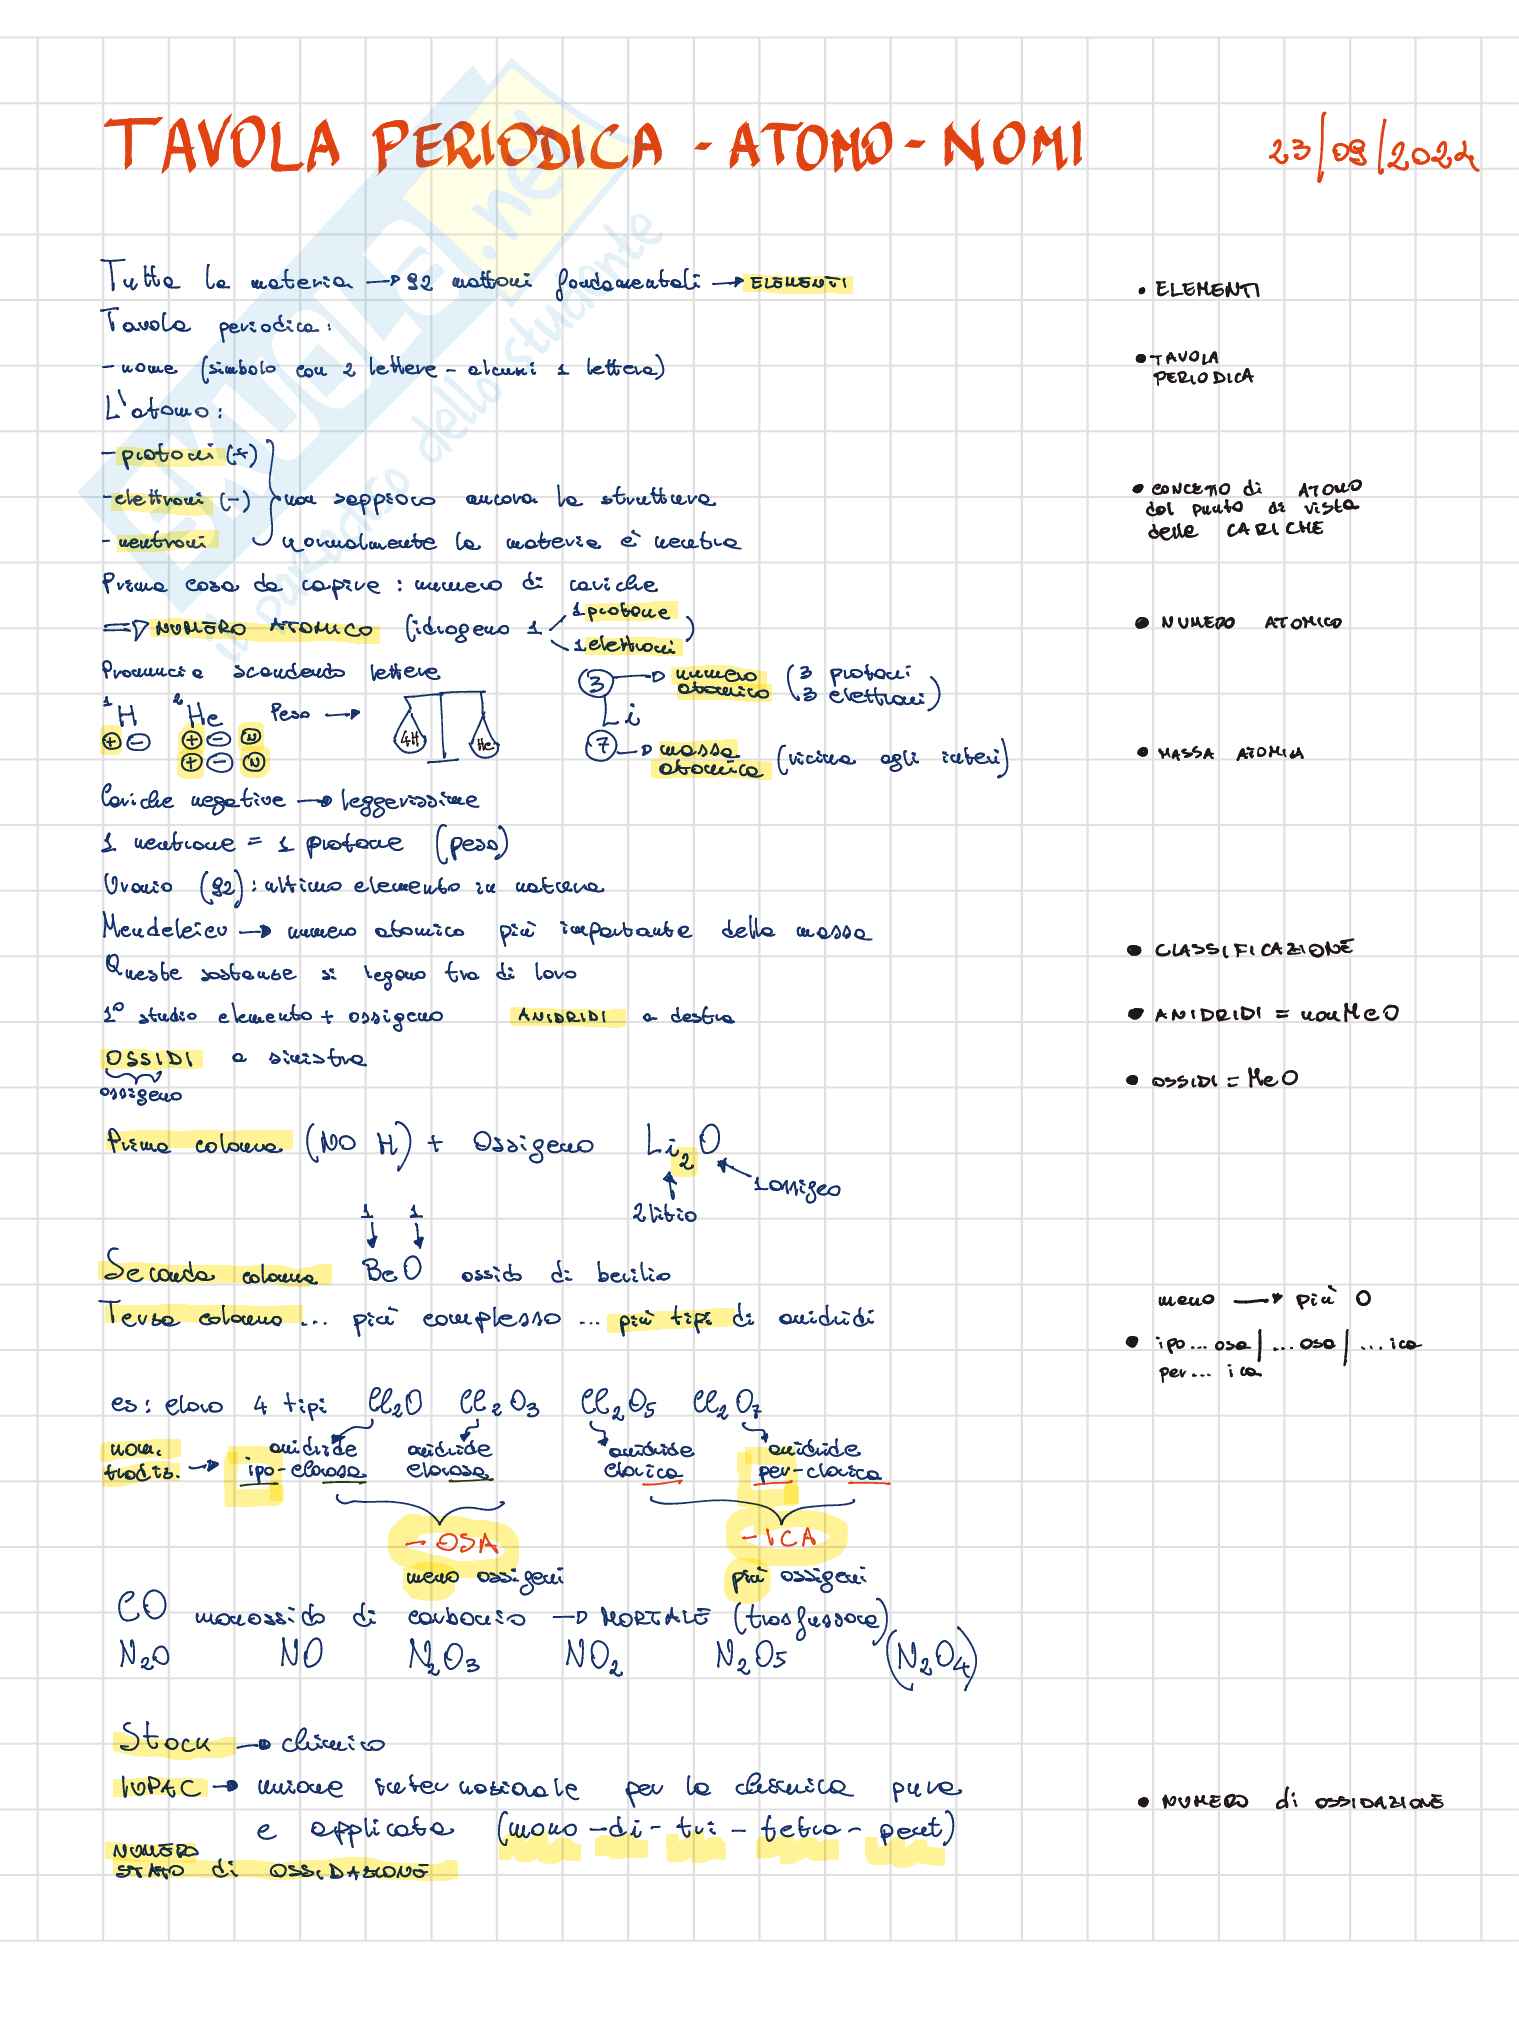 TAVOLA PERIODICA - ATOMO - NOMI
23/09/2024
Tutta la materia → 92 mattoni fondamentali → ELEMENTI
• ELEMENTI
Tavola periodica:
- nome (simbolo con 2 lettere - alcuni 1 lettera)
• TAVOLA
PERIODICA
L'atomo:
- protoni (+)
- elettroni (-) non sappiaco ancora la struttura
- neutroni normalmente la materia è neutra
• CONCETTO di ATOMO
dal punto di vista
delle CARICHE
Prima cosa da capire: numero di cariche
⇒ NUMERO ATOMICO (idrogeno 1
1 protone
1 elettroni)
• NUMERO ATOMICO
Pronuncia scandendo lettere
3 → numero atomico (3 protoni
3 elettroni)
1H 2He Peso →
4H He
Li
+ - + - N
+ - N
7 → massa atomica (vicina agli interi)
• MASSA ATOMICA
Cariche negative → leggerissime
1 neutrone = 1 protone (peso)
Uranio (92): ultimo elemento in natura
Mendeleiev → numero atomico più importante della massa
• CLASSIFICAZIONE
Queste sostanze si legano tra di loro
1° studio elemento + ossigeno ANIDRIDI a destra
• ANIDRIDI = nonMeO
OSSIDI a sinistra
ossigeno
• OSSIDI = MeO
Prima colonna (NO H) + Ossigeno Li₂O
1 ossigeo
2 litio
1 1
Seconda colonna BeO ossido di berilio
Terza colonna ... più complesso ... più tipi di anidridi
meno → più O
• ipo... osa | ... osa | ... ica
per... ica
es: cloro 4 tipi Cl₂O Cl₂O₃ Cl₂O₅ Cl₂O₇
nom.
tradiz. →
anidride
ipo-clorosa
anidride
clorosa
anidride
clorica
anidride
per-clorica
- OSA
- ICA
meno ossigeni
più ossigeni
CO monossido di carbonio → MORTALE (trasfusione)
N₂O NO N₂O₃ NO₂ N₂O₅ (N₂O₄)
Stock → chimico
IUPAC → unione internazionale per la chimica pura
e applicata (mono - di - tri - tetra - pent)
• NUMERO di OSSIDAZIONE
NUMERO
STATO di OSSIDAZIONE
SKUOLA.net
il paradiso dello studente